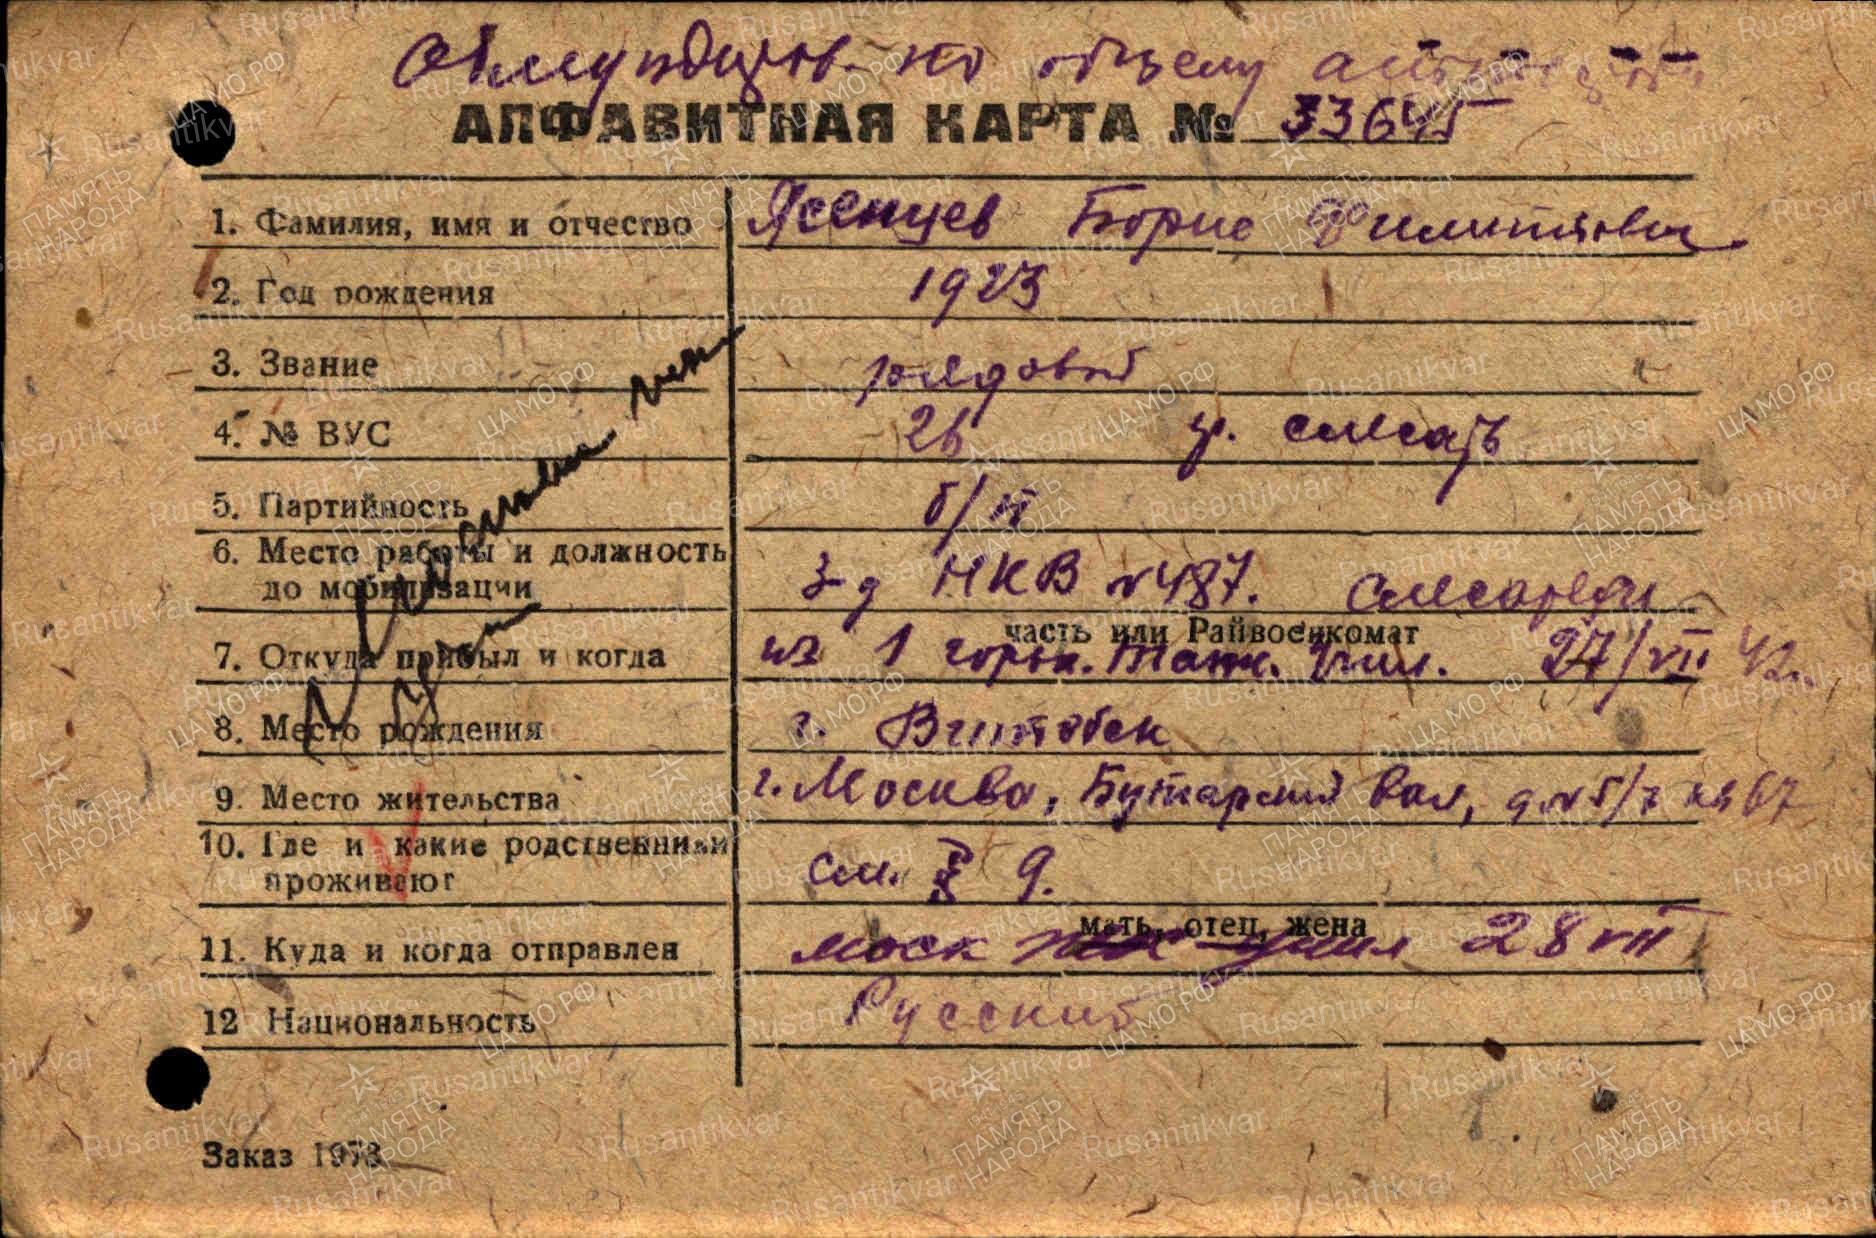 Обмундиров. по общему
АЛФАВИТНАЯ КАРТА № 33645
1. Фамилия, имя и отчество Ясенцев Борис Филиппович
2. Год рождения 1923
3. Звание рядовой
4. № ВУС 26 гр. слесарь
5. Партийность б/п
6. Место работы и должность до мобилизации з-д НКВ №487. слесарем
часть или Райвоенкомат
7. Откуда прибыл и когда из 1 горьк. танк. учил. 27/VII 42 г.
8. Место рождения г. Витебск
9. Место жительства г. Москва, Бутырский вал, д. №5/7 кв 67
10. Где и какие родственники проживают см. § 9.
мать, отец, жена
11. Куда и когда отправлен моск 28 VII
12 Национальность Русский
Заказ 1973
Rusantikvar
ЦАМО РФ
ПАМЯТЬ НАРОДА